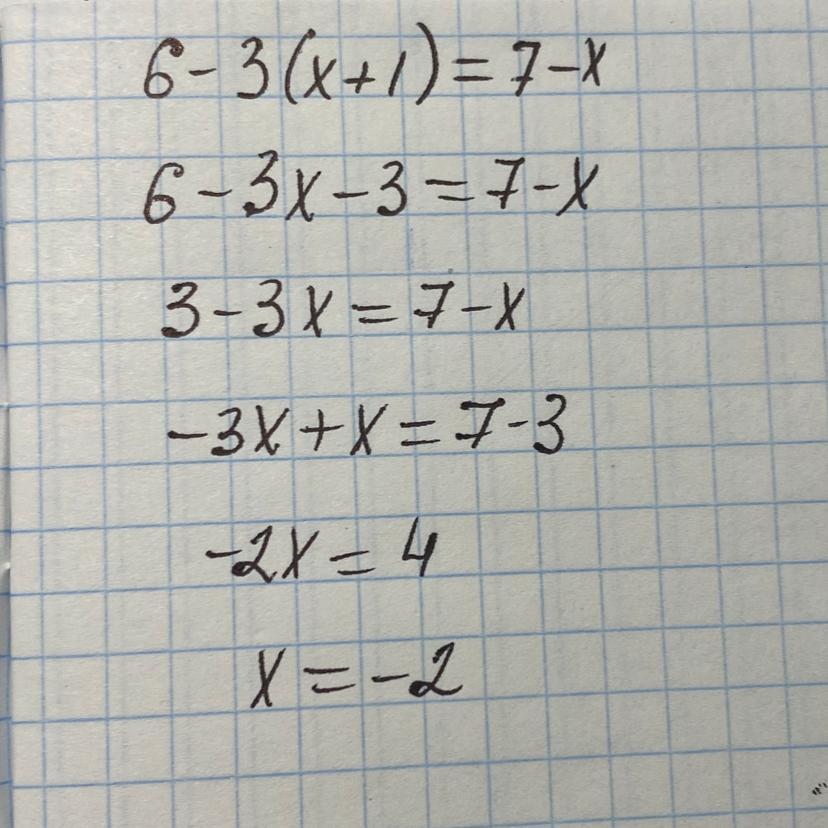 6-3(x+1)=7-x
6-3x-3=7-x
3-3x=7-x
-3x+x=7-3
-2x=4
x=-2